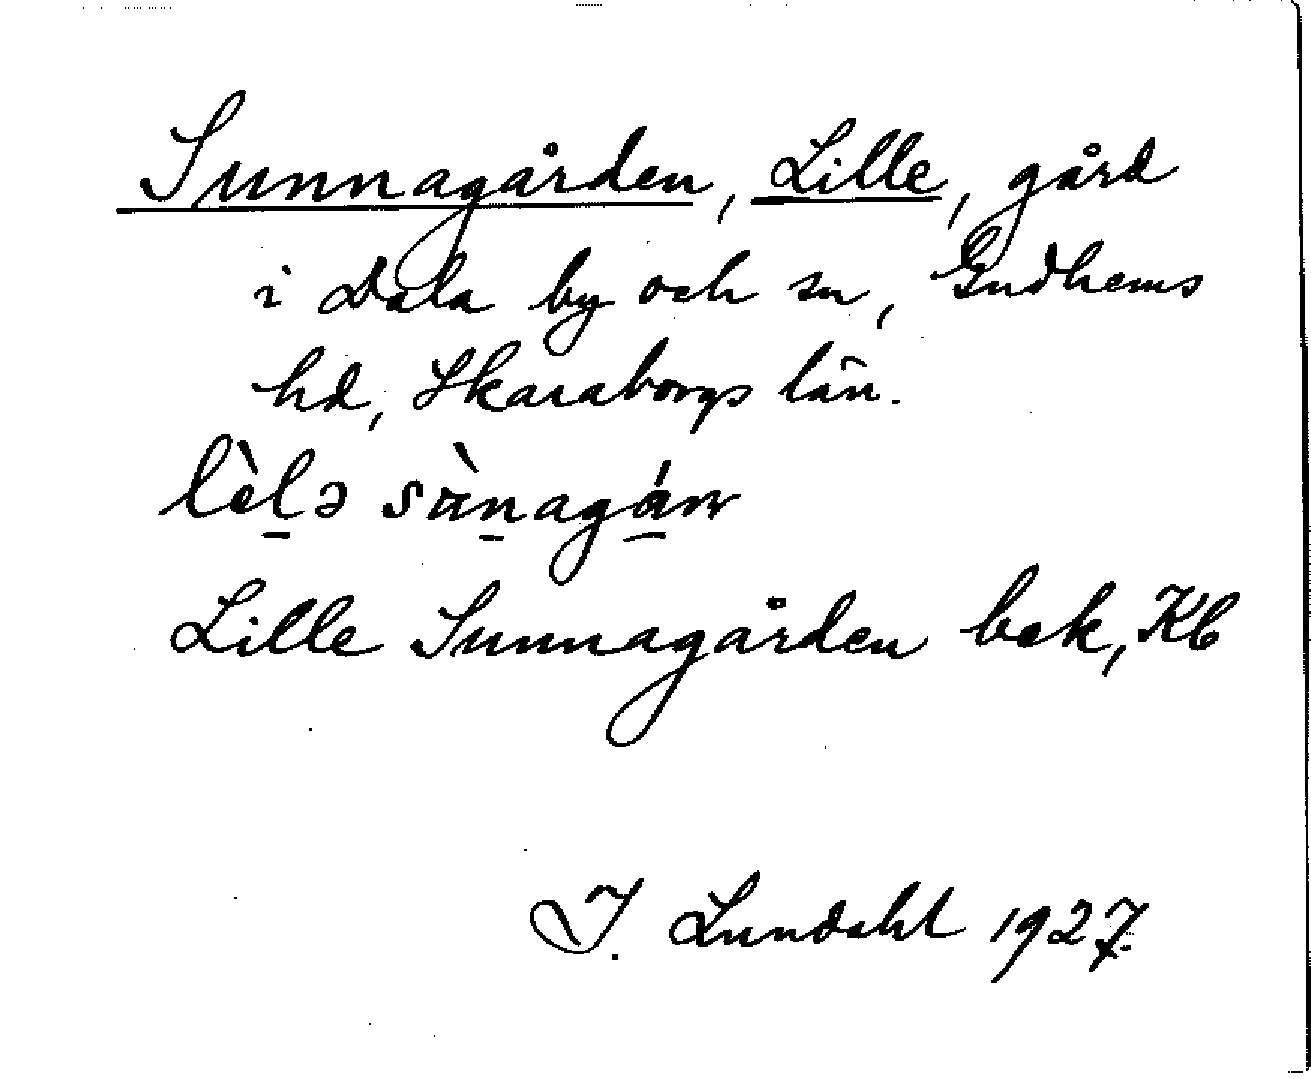 Sunnagården, Lille, gård
i Dala by och sn, Gudhems
hd, Skaraborgs län.
lèl̠ə sὰn̠agá̠ɴ
Lille Sunnagården bek, Kb
I. Lundahl 1927.